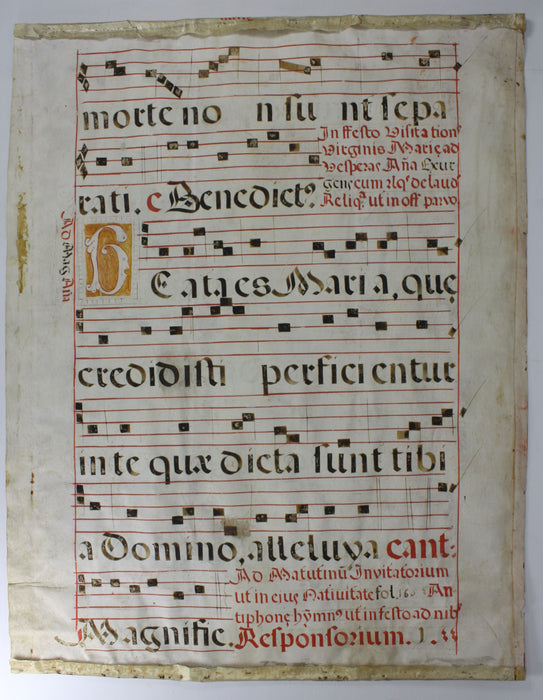 morte no n su nt sepa
In festo Visitation
Virginis Marię ad
Vesperas Aña Beut
gens cum rlqs de laud
Reliqᵃ ut in off parvo
rati. c Benedictꝰ.
Ad Mag Añ
BEata es Maria, quę
credidisti perfici entur
in te quæ dicta sunt tibi
a Domino, alleluya cant:
Ad Matutinũ Invitatorium
ut in ejus Nativitate fol. An
tiphonę hỹmnꝰ ut in festo ad nib
Magnific. Responsorium. 1.